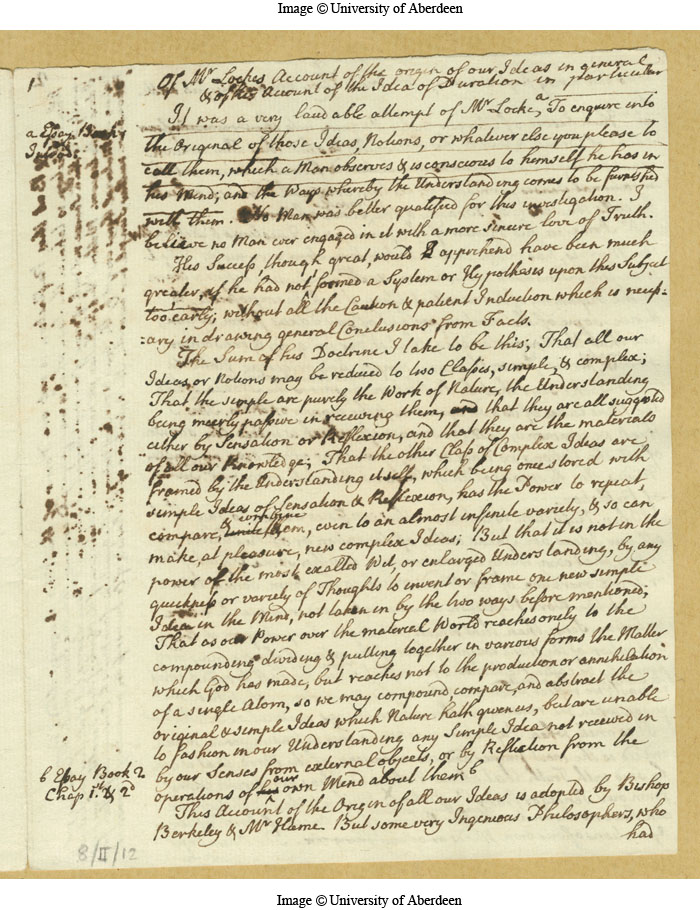 Image © University of Aberdeen
1
Of Mr. Lockes Account of the origin of our Ideas in general
& of his Account of the Idea of Duration in particular
It was a very laudable attempt of Mr. Locke a, To enquire into
a Essay Book 1
the Original of those Ideas, Notions, or whatever else you please to
call them, which a Man observes & is conscious to himself he has in
his Mind; and the Ways whereby the Understanding comes to be furnished
with them. No Man was better qualified for this investigation. I
believe no Man ever engaged in it with a more sincere love of Truth.
His Success, though great, would I apprehend have been much
greater, if he had not formed a System or Hypothases upon this Subject
too early; without all the Caution & patient Induction which is necess-
-ary in drawing general Conclusions from Facts.
The Sum of his Doctrine I take to be this; That all our
Ideas, or Notions may be reduced to two Classes, simple, & complex;
That the simple are purely the Work of Nature, the Understanding
being meerly passive in receiving them, and that they are all suggested
either by Sensation or Reflexion, and that they are the materials
of all our Knowledge; That the other Class of Complex Ideas are
framed by the Understanding itself, which being once stored with
simple Ideas of Sensation & Reflexion, has the Power to repeat,
& combine
compare, unite them, even to an almost infinite variety, & so can
make, at pleasure, new complex Ideas; But that it is not in the
power of the most exalted Wit, or enlarged Understanding, by any
quickness or variety of Thoughts to invent or frame one new simple
Idea in the Mind, not taken in by the two ways before mentioned;
That as our Power over the material World reaches only to the
compounding dividing & putting together in various forms the Matter
which God has made, but reaches not to the production or annihilation
of a single Atom, so we may compound, compare, and abstract the
original & simple Ideas which Nature hath given us, but are unable
to fashion in our Understanding any Simple Idea not received in
b Essay Book 2
by our Senses from external objects, or by Reflection from the
Chap 1st & 2d
our
operations of his own Mind about them b
This Account of the Origin of all our Ideas is adopted by Bishop
Berkeley & Mr Hume. But some very Ingenious Philosophers, who
had
8/II/12
Image © University of Aberdeen